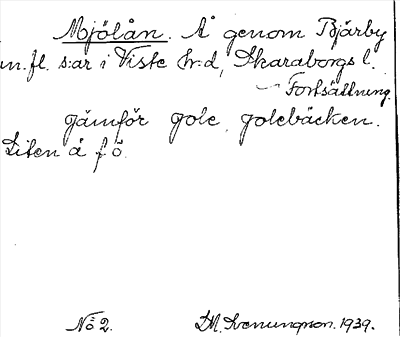 Mjölån. Å genom Bjärby
m.fl. s:ar i Viste hr:d, Skaraborgs l.
Fortsättning.
Jämför gole, golebäcken.
Liten å f ö.
No 2. D.M. Svenungson. 1939.